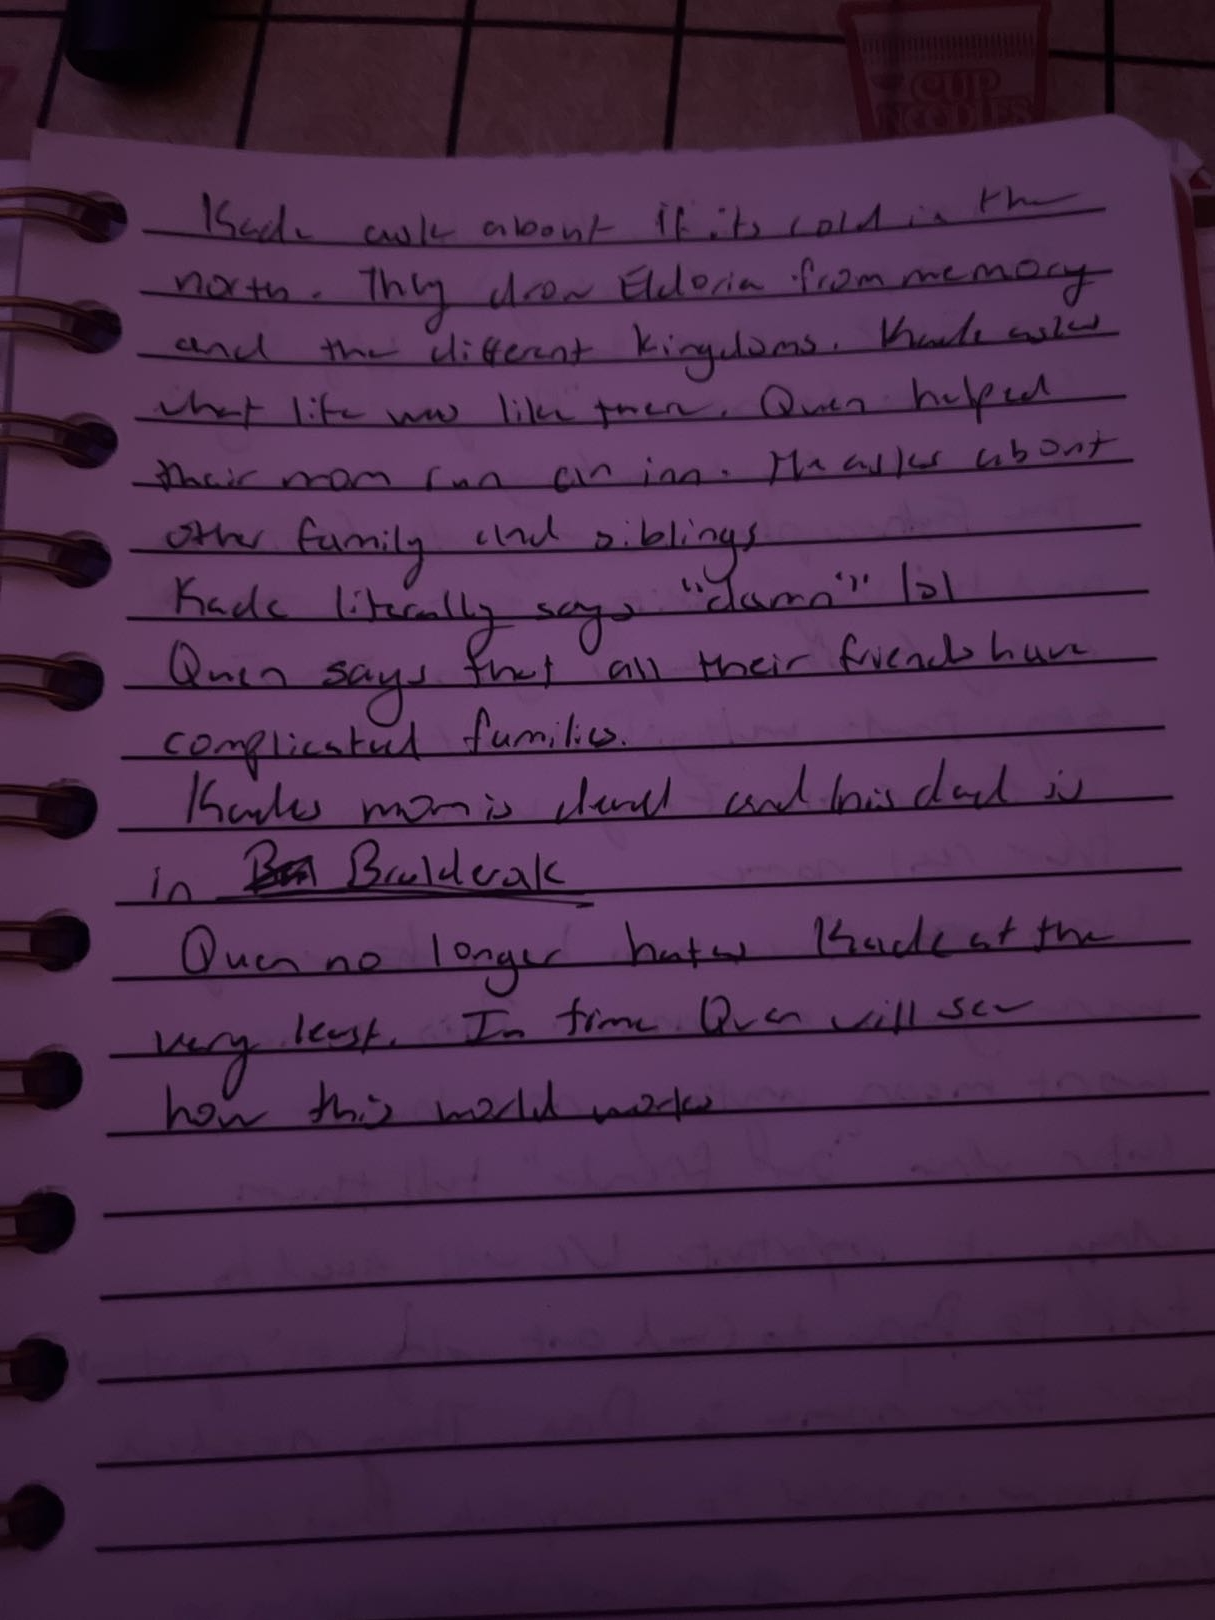 CUP
NOODLES
Kade ask about if its cold in the
north. They draw Eldoria from memory
and the different kingdoms. Kade askes
what life was like there. Quen helped
their mom run an inn. He askes about
other family and siblings
Kade literally says "damn" lol
Quen says that all their friends have
complicated families.
Kades mom is dead and his dad is
in Baulderak
Quen no longer hates Kade at the
very least. In time Quen will see
how this world works